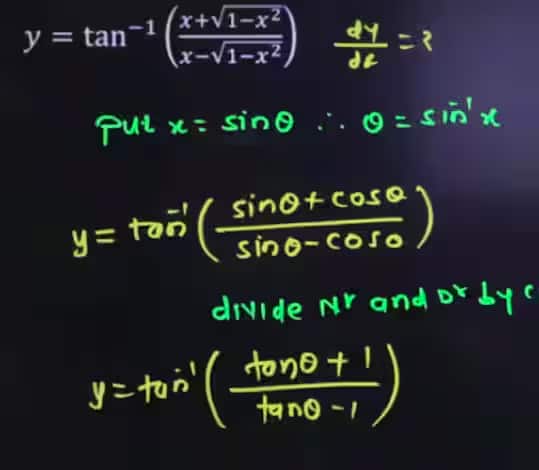 y = tan⁻¹((x+√1−x²)/(x−√1−x²)) dy/dx = ?
put x = sinθ ∴ θ = sin⁻¹x
y = tan⁻¹((sinθ + cosθ)/(sinθ − cosθ))
divide Nr and Dr by c
y = tan⁻¹((tanθ + 1)/(tanθ − 1))